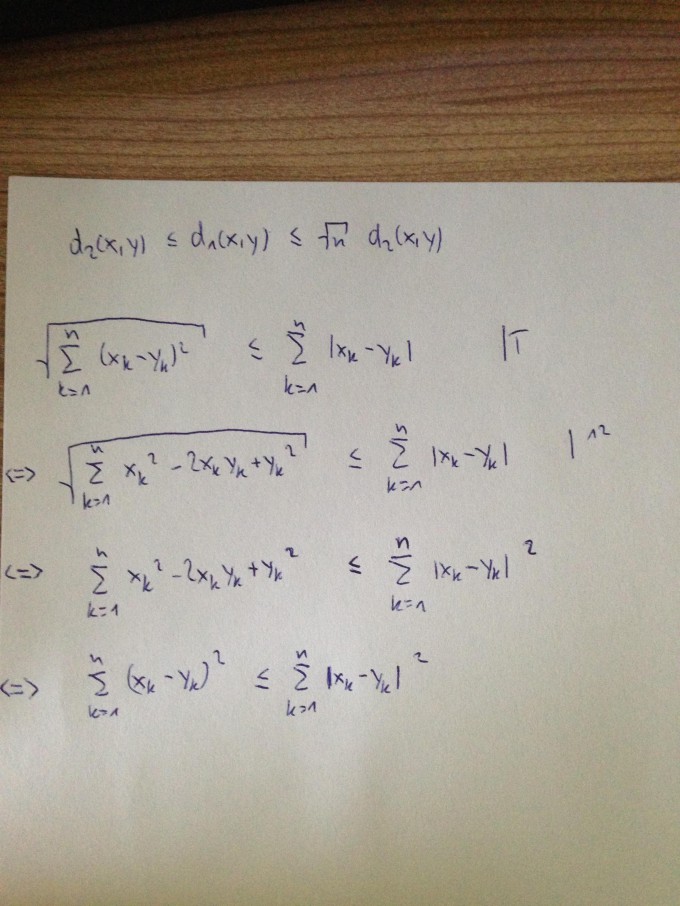 d₂(x,y) ≤ d₁(x,y) ≤ √n d₂(x,y)
√(∑_{k=1}^{n} (x_k - y_k)²) ≤ ∑_{k=1}^{n} |x_k - y_k| | T
<=> √(∑_{k=1}^{n} x_k² - 2x_k y_k + y_k²) ≤ ∑_{k=1}^{n} |x_k - y_k| | ^2
<=> ∑_{k=1}^{n} x_k² - 2x_k y_k + y_k² ≤ ∑_{k=1}^{n} |x_k - y_k|²
<=> ∑_{k=1}^{n} (x_k - y_k)² ≤ ∑_{k=1}^{n} |x_k - y_k|²